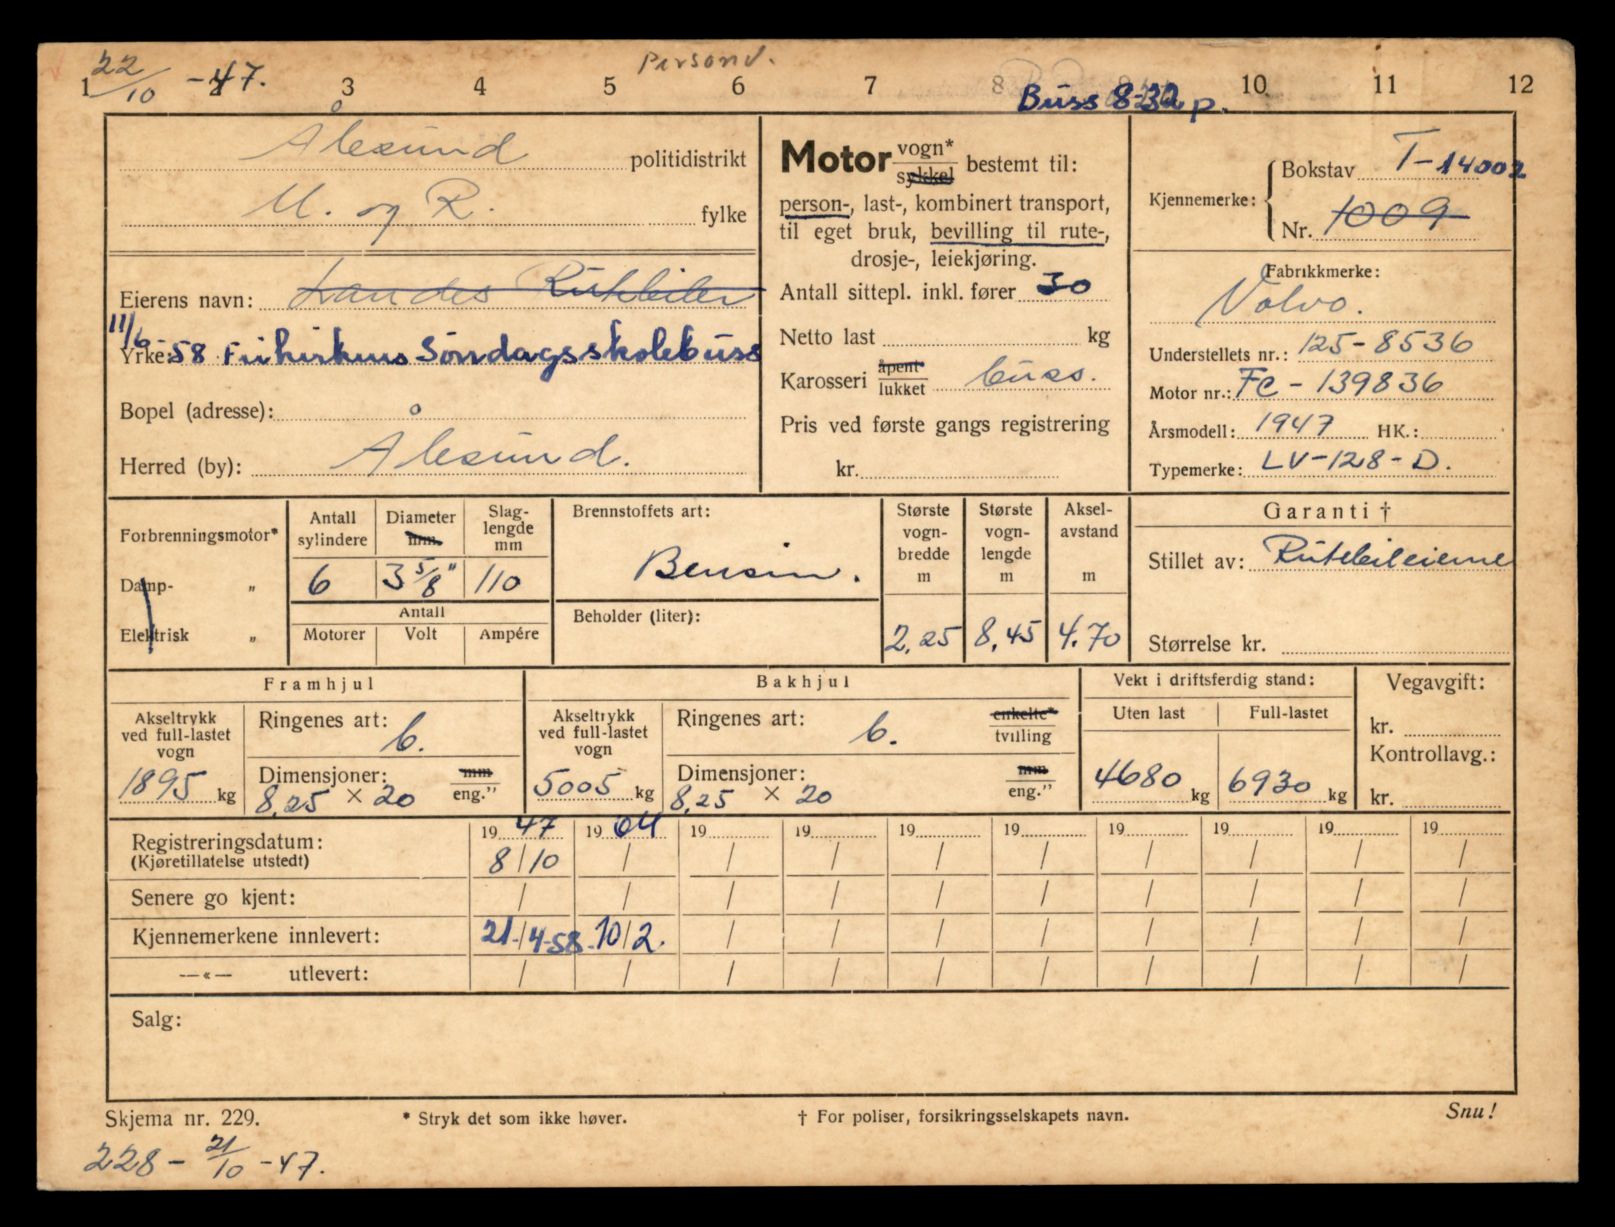 22/10 -47. Personv.
1 2 3 4 5 6 7 8 10 11 12
Buss 8-32 p.
Ålesund politidistrikt
M. og R. fylke
Eierens navn: Landes Rutebiler
11/6
Yrke: 58 Frikirkens Søndagsskolebuss
Bopel (adresse):
Herred (by): Ålesund.
Motor vogn* sykkel bestemt til:
person-, last-, kombinert transport,
til eget bruk, bevilling til rute-,
drosje-, leiekjøring.
Antall sittepl. inkl. fører 30
Netto last kg
Karosseri åpent* lukket buss.
Pris ved første gangs registrering
kr.
Kjennemerke: Bokstav T-14002
Nr. 1009
Fabrikkmerke:
Volvo.
Understellets nr.: 125-8536
Motor nr.: FC - 139836
Årsmodell: 1947 HK.:
Typemerke: LV-128-D.
Forbrenningsmotor*
Damp- „
Elektrisk „
Antall sylindere Diameter mm Slaglengde mm
6 3 5/8" 110
Antall
Motorer Volt Ampére
Brennstoffets art:
Bensin.
Beholder (liter):
Største vogn-bredde m
2.25
Største vogn-lengde m
8.45
Aksel-avstand m
4.70
Garanti †
Stillet av: Rutebileierne
Størrelse kr.
Framhjul
Akseltrykk ved full-lastet vogn
1895 kg
Ringenes art: b.
Dimensjoner: mm
8.25 × 20 eng."
Bakhjul
Akseltrykk ved full-lastet vogn
5005 kg
Ringenes art: b. enkelte* tvilling
Dimensjoner: mm
8.25 × 20 eng."
Vekt i driftsferdig stand:
Uten last Full-lastet
4680 kg 6930 kg
Vegavgift:
kr.
Kontrollavg.:
kr.
Registreringsdatum: 19 47 19 64 19 19 19 19 19 19 19 19
(Kjøretillatelse utstedt) 8/10 / / / / / / / / /
Senere go kjent: / / / / / / / / / /
Kjennemerkene innlevert: 21-/4-58- 10/2. / / / / / / / /
—«— utlevert: / / / / / / / / / /
Salg:
Skjema nr. 229. * Stryk det som ikke høver. † For poliser, forsikringsselskapets navn. Snu!
228 - 21/10 -47.